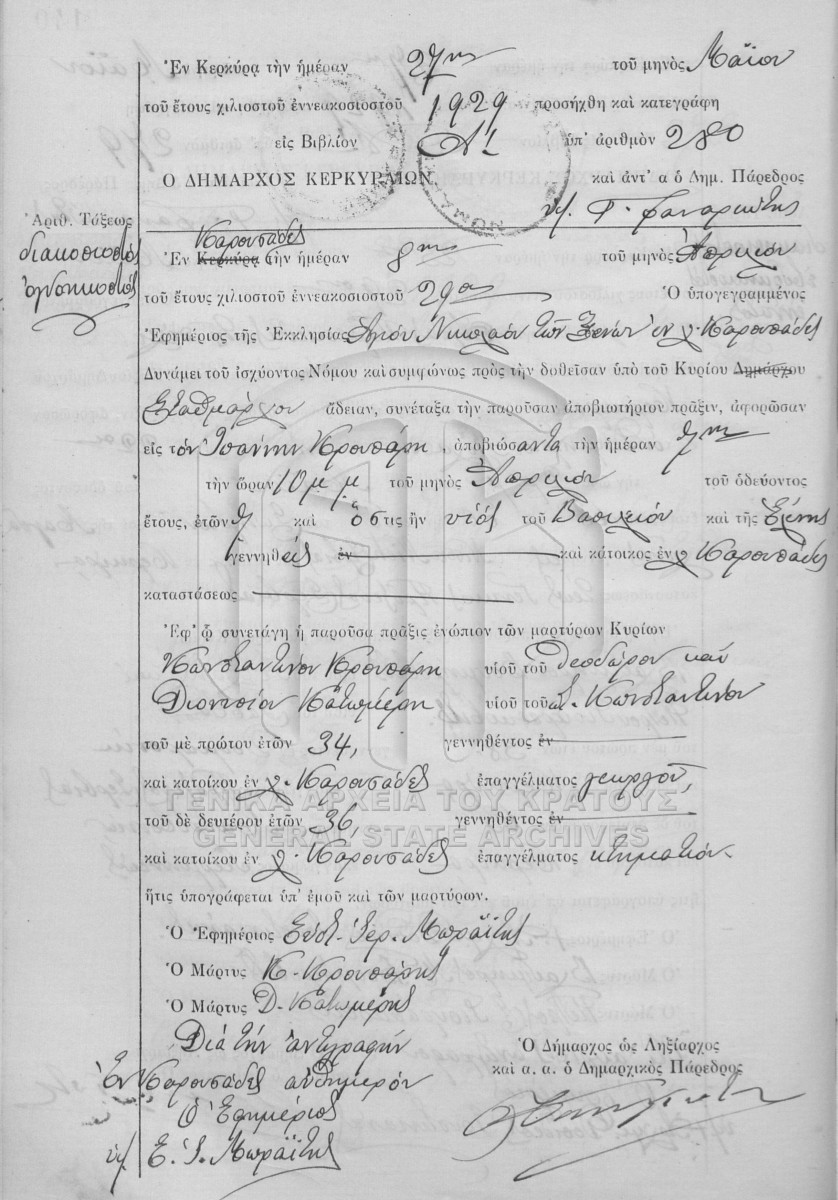 Ἐν Κερκύρᾳ τὴν ἡμέραν 27ην τοῦ μηνὸς Μαΐου
τοῦ ἔτους χιλιοστοῦ ἐννεακοσιοστοῦ 1929 προσήχθη καὶ κατεγράφη
εἰς Βιβλίον Α! ὑπ' ἀριθμὸν 280
Ο ΔΗΜΑΡΧΟΣ ΚΕΡΚΥΡΑΙΩΝ, καὶ ἀντ' α ὁ Δημ. Πάρεδρος
Ἀριθ. Τάξεως
διακοσιοστὸς
ὀγδοηκοστὸς
Καρουσάδες
Ἐν Κερκύρᾳ τὴν ἡμέραν 8ην τοῦ μηνὸς Ἀπριλίου
τοῦ ἔτους χιλιοστοῦ ἐννεακοσιοστοῦ 29ου Ὁ ὑπογεγραμμένος
Ἐφημέριος τῆς Ἐκκλησίας Ἁγίου Νικολάου τῶν Ξένων ἐν χ. Καρουσάδες
Δυνάμει τοῦ ἰσχύοντος Νόμου καὶ συμφώνως πρὸς τὴν δοθεῖσαν ὑπὸ τοῦ Κυρίου Δημάρχου
Σταθμάρχου ἄδειαν, συνέταξα τὴν παροῦσαν ἀποβιωτήριον πρᾶξιν, ἀφορῶσαν
εἰς τὸν Ἰωάννην, ἀποβιώσαντα τὴν ἡμέραν 7ην
τὴν ὥραν 10 μ μ τοῦ μηνὸς Ἀπριλίου τοῦ ὁδεύοντος
ἔτους, ἐτῶν καὶ ὅστις ἦν υἱὸς τοῦ Βασιλείου καὶ τῆς Ἑλένης
γεννηθεὶς ἐν καὶ κάτοικος ἐν χ Καρουσάδες
καταστάσεως
Ἐφ' ᾧ συνετάγη ἡ παροῦσα πρᾶξις ἐνώπιον τῶν μαρτύρων Κυρίων
Κωνσταντίνου υἱοῦ τοῦ Θεοδώρου καὶ
Διονυσίου Κατωμέρη υἱοῦ τοῦ Σ. Κωνσταντίνου
τοῦ μὲ πρώτου ἐτῶν 34, γεννηθέντος ἐν
καὶ κατοίκου ἐν χ. Καρουσάδες ἐπαγγέλματος γεωργοῦ,
τοῦ δὲ δευτέρου ἐτῶν 36, γεννηθέντος ἐν
ΓΕΝΙΚΑ ΑΡΧΕΙΑ ΤΟΥ ΚΡΑΤΟΥΣ
GENERAL STATE ARCHIVES
καὶ κατοίκου ἐν χ. Καρουσάδες ἐπαγγέλματος κτηματίου
ἥτις ὑπογράφεται ὑπ' ἐμοῦ καὶ τῶν μαρτύρων.
Ὁ Ἐφημέριος Εὐστ. Ἱερ. Μωραΐτης
Ὁ Μάρτυς Κ.
Ὁ Μάρτυς Δ. Κατωμέρης
Διὰ τὴν ἀντιγραφὴν
Ἐν Καρουσάδες αὐθημερόν
Ὁ Ἐφημέριος
υ/ Ε. Ι. Μωραΐτης
Ὁ Δήμαρχος ὡς Ληξίαρχος
καὶ α. α. ὁ Δημαρχικὸς Πάρεδρος